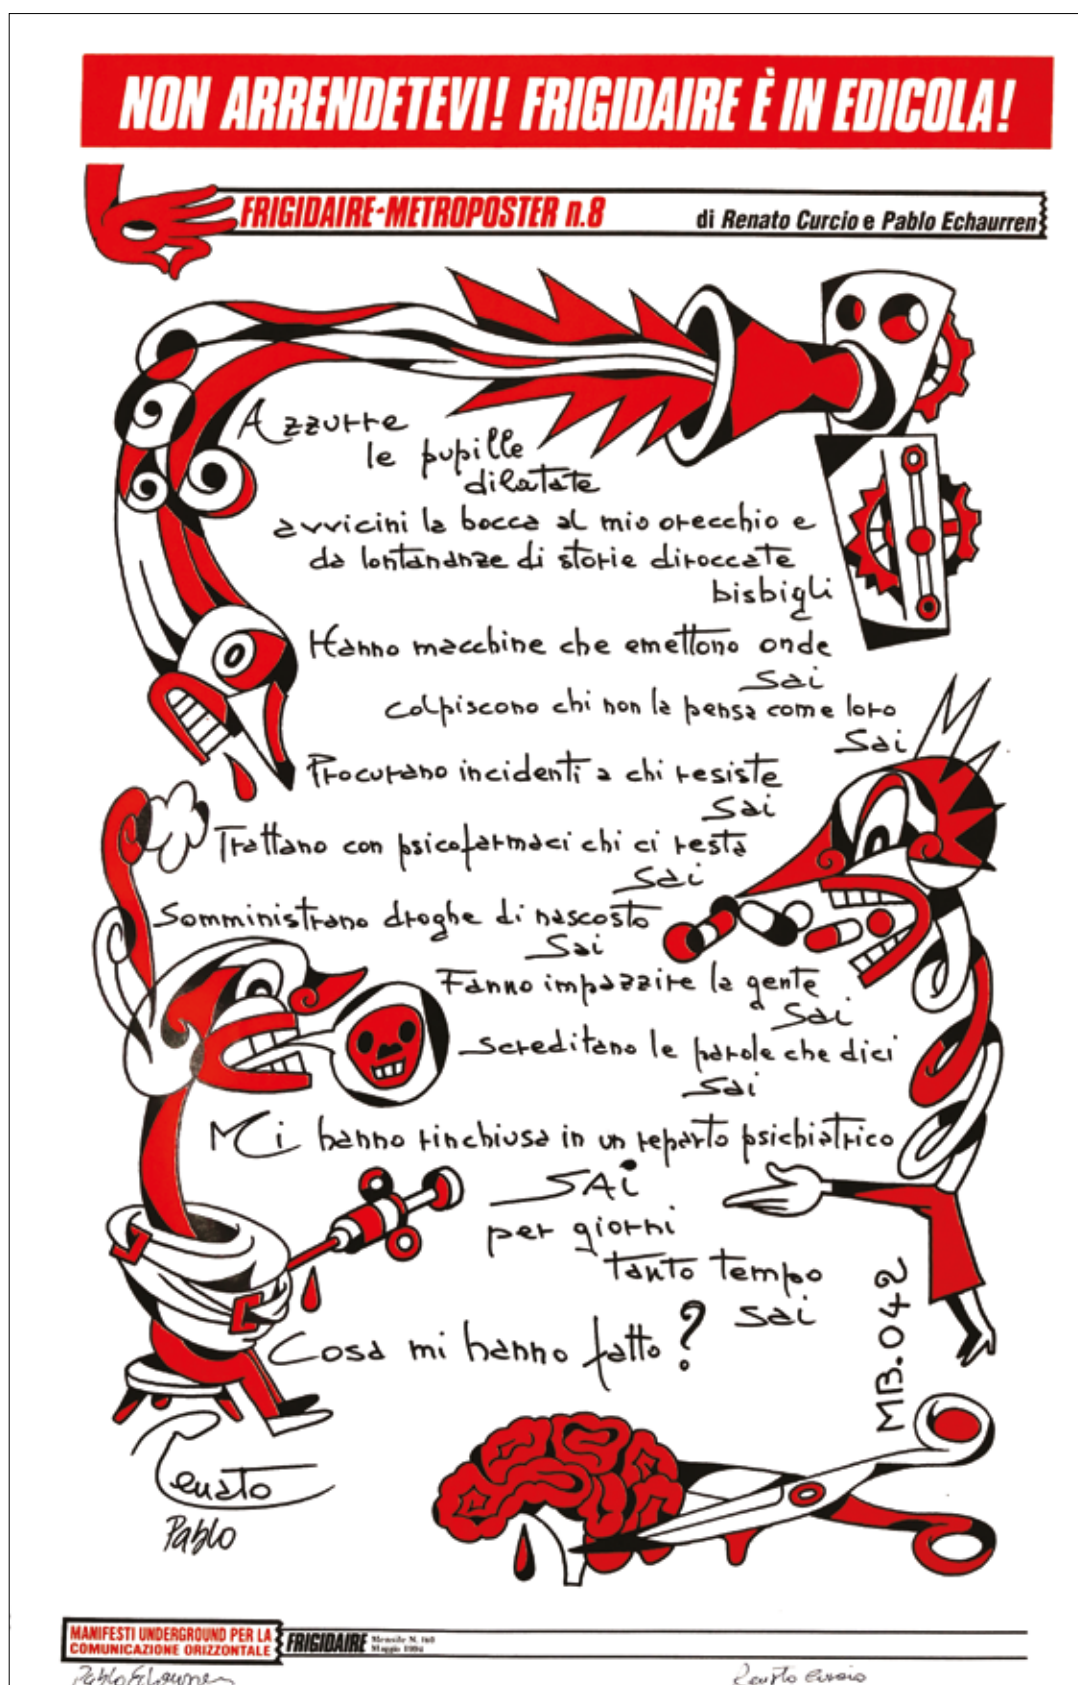 NON ARRENDETEVI! FRIGIDAIRE È IN EDICOLA!
FRIGIDAIRE-METROPOSTER n.8 di Renato Curcio e Pablo Echaurren
Azzurre
le pupille
dilatate
avvicini la bocca al mio orecchio e
da lontananze di storie diroccate
bisbigli
Hanno macchine che emettono onde
Sai
colpiscono chi non la pensa come loro
Sai
Procurano incidenti a chi resiste
Sai
Trattano con psicofarmaci chi ci resta
Sai
Somministrano droghe di nascosto
Sai
Fanno impazzire la gente
Sai
screditano le parole che dici
Sai
Mi hanno rinchiusa in un reparto psichiatrico
SAi
per giorni
tanto tempo
sai
Cosa mi hanno fatto?
MB.042
Renato
Pablo
MANIFESTI UNDERGROUND PER LA
COMUNICAZIONE ORIZZONTALE
FRIGIDAIRE Mensile N. 160
Maggio 1994
Pablo Echaurren Renato Curcio